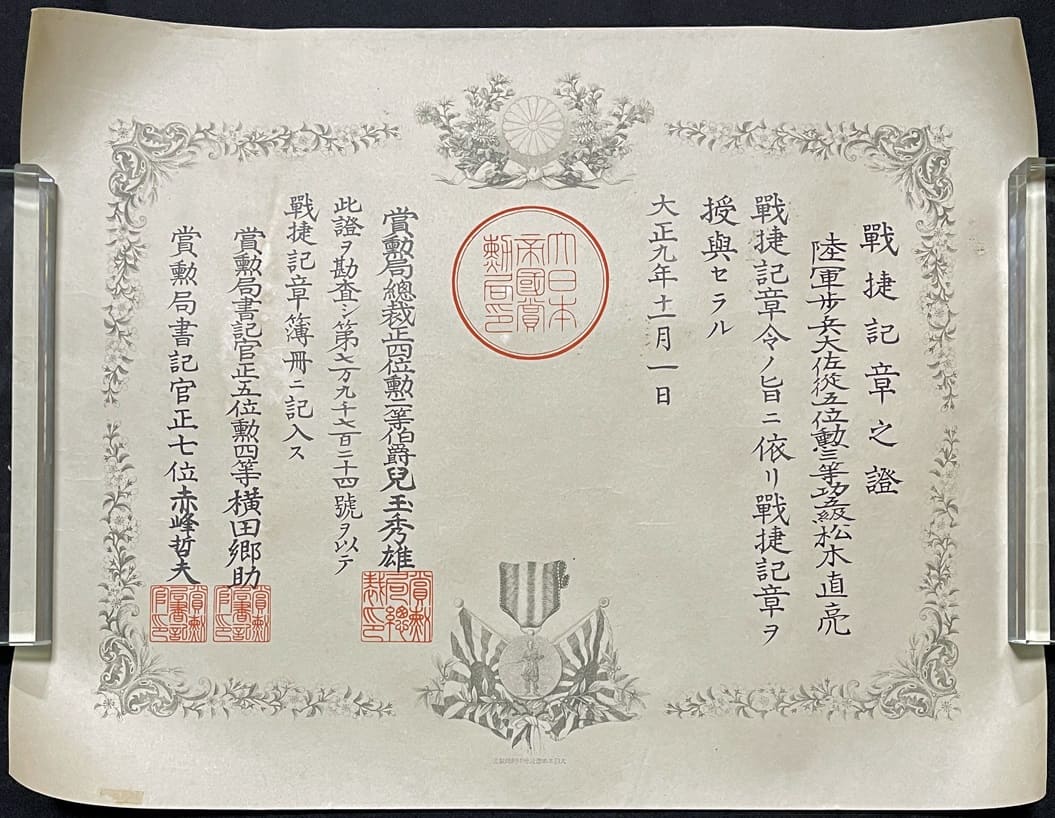 戰捷記章之證
陸軍步兵大佐從五位勳三等功五級松木直亮
戰捷記章令ノ旨ニ依リ戰捷記章ヲ
授與セラル
大正九年十一月一日
大日本
帝國賞
勳局印
賞勳局總裁正四位勳二等伯爵兒玉秀雄
賞勳
局總
裁印
此證ヲ勘査シ第七万九千七百二十四號ヲ以テ
戰捷記章簿冊ニ記入ス
賞勳局書記官正五位勳四等橫田鄉助
賞勳
局書記
官印
賞勳局書記官正七位赤峰哲夫
賞勳
局書記
官印